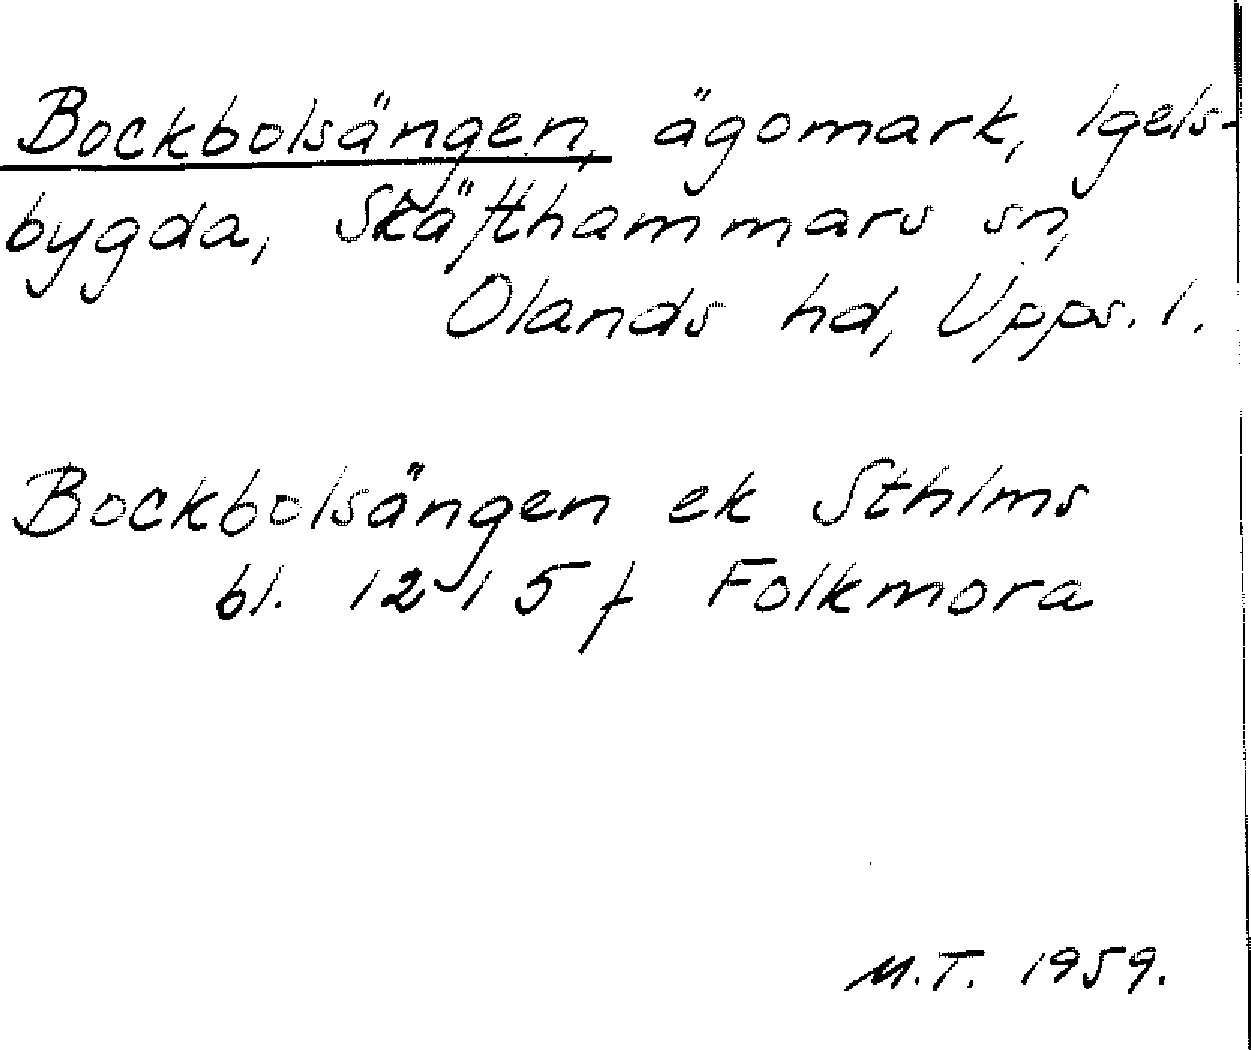 Bockbolsängen, ägomark, Igels-
bygda, Skäfthammars sn,
Olands hd, Upps. l.
Bockbolsängen ek Sthlms
bl. 12 I 5 f Folkmora
M.T. 1959.